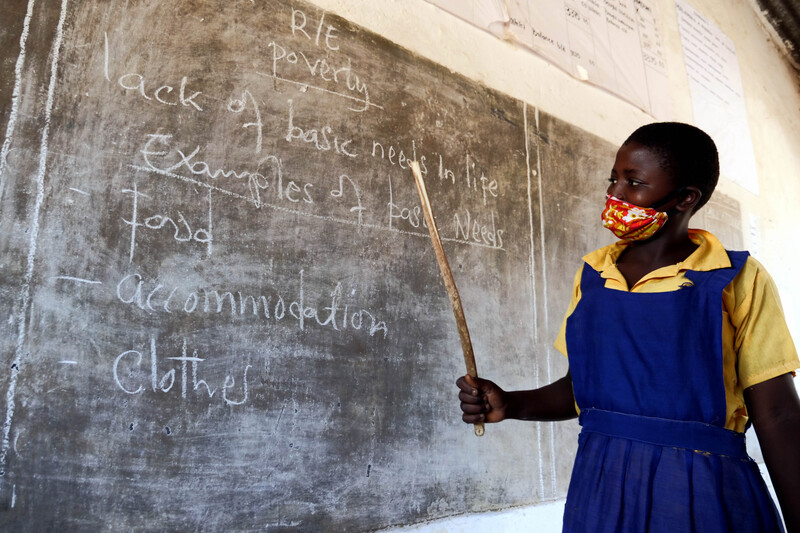 R/E
poverty
lack of basic needs in life
Examples of basic Needs
- Food
- accommodation
- Clothes